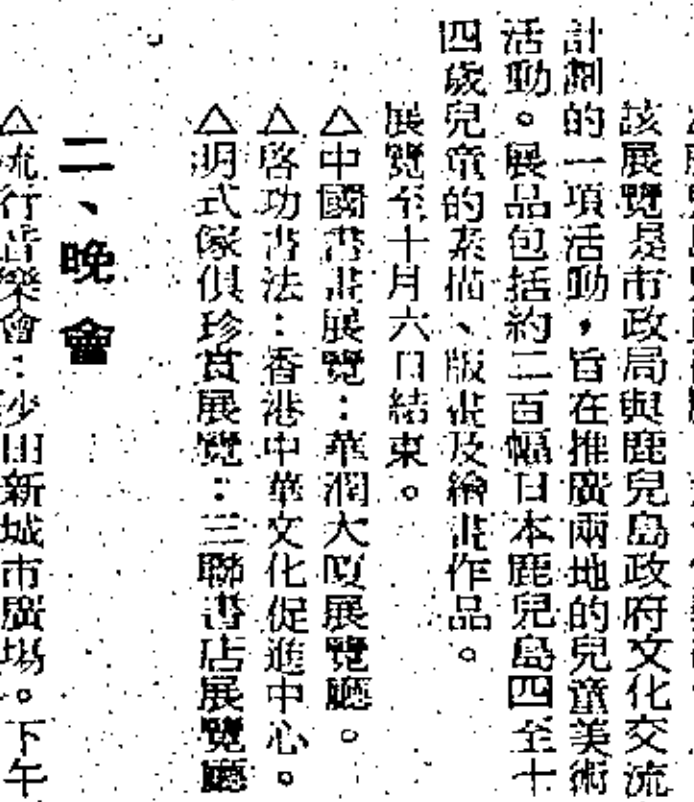 該展覽是市政局與鹿兒島政府文化交流
計劃的一項活動，旨在推廣兩地的兒童美術
活動。展品包括約二百幅日本鹿兒島四至十
四歲兒童的素描、版畫及繪畫作品。
展覽至十月六日結束。
△中國書畫展覽：華潤大廈展覽廳。
△啓功書法：香港中華文化促進中心。
△明式傢俱珍賞展覽：三聯書店展覽廳
二、晚會
△流行音樂會：沙田新城市廣場。下午